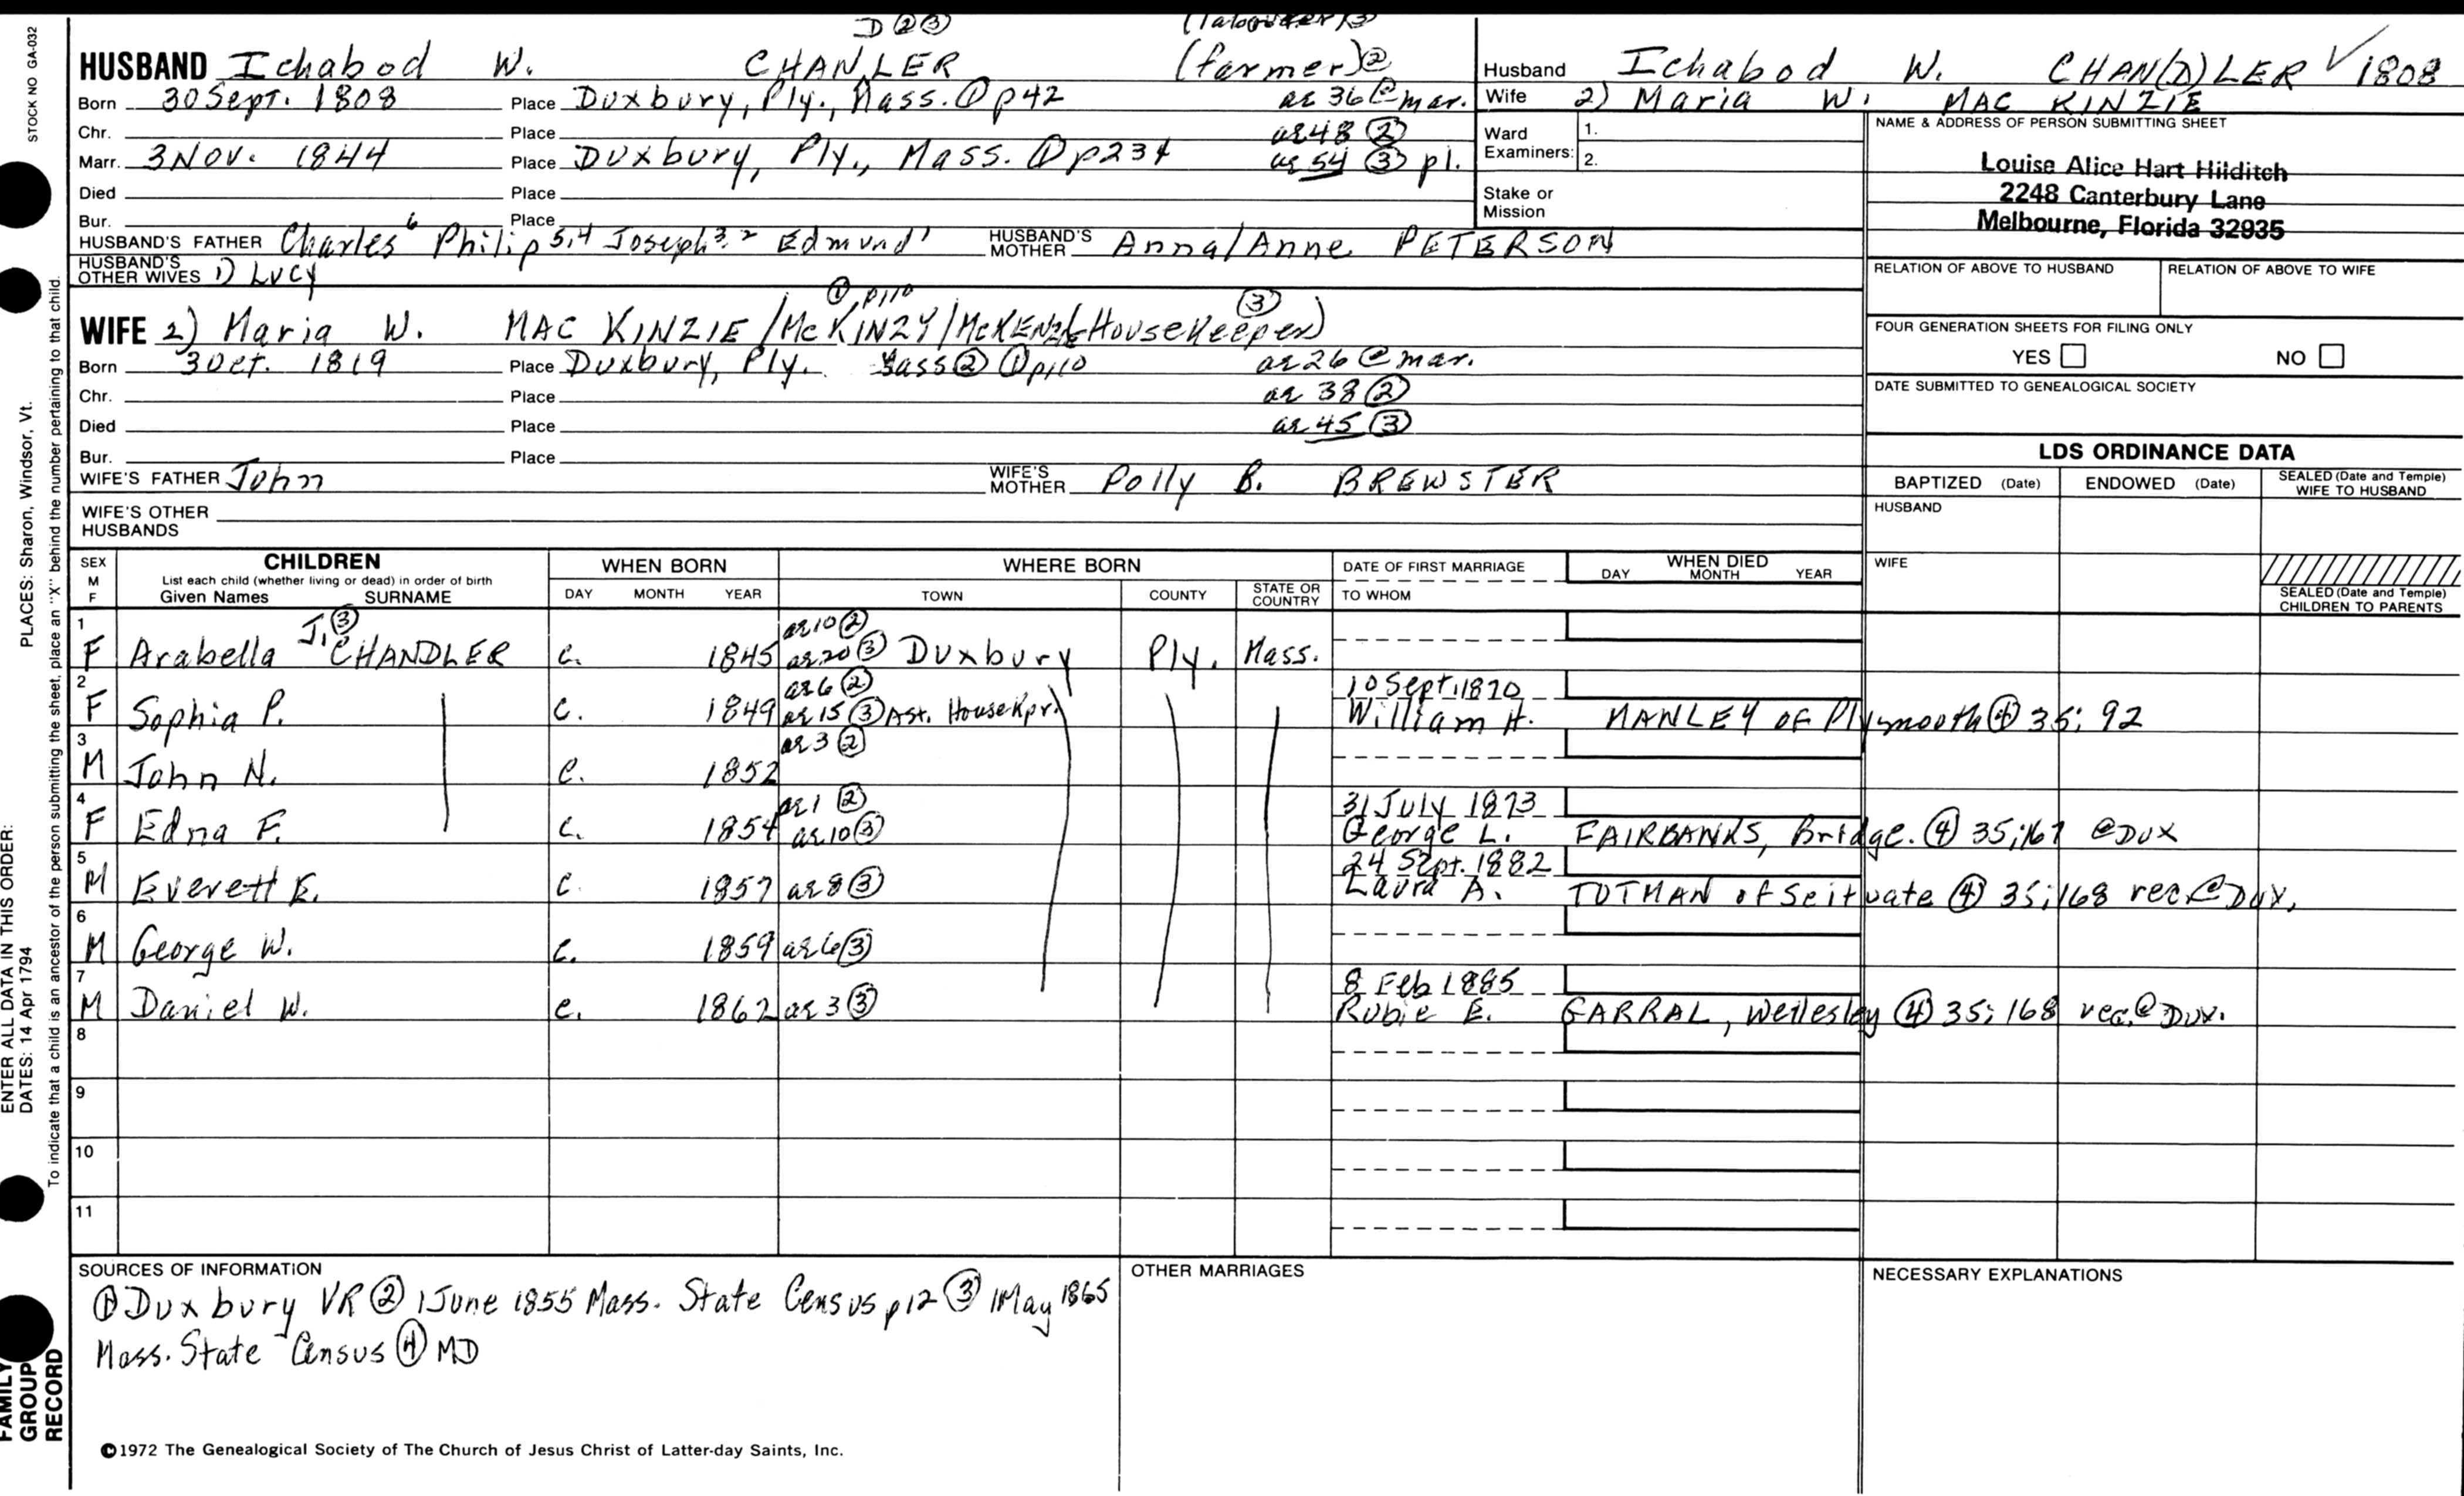 STOCK NO GA-032
D ② ③
(farmer)②
HUSBAND Ichabod W. CHANLER
Born 30 Sept. 1808 Place Duxbury, Ply., Mass. ① p42 ae 36 @ mar.
Chr. Place ae 48 ②
Marr. 3 Nov. 1844 Place Duxbury, Ply., Mass. ① p234 ae 54 ③ pl.
Died Place
Bur. Place
HUSBAND'S FATHER Charles⁶ Philip⁵,⁴ Joseph³,² Edmund¹ HUSBAND'S MOTHER Anna/Anne PETERSON
HUSBAND'S OTHER WIVES 1) Lucy
① p110 ③
WIFE 2) Maria W. MAC KINZIE/McKINZY/McKENZIE (Housekeeper)
Born 3 Oct. 1819 Place Duxbury, Ply. Mass ② ① p110 ae 26 @ mar.
Chr. Place ae 38 ②
Died Place ae 45 ③
Bur. Place
WIFE'S FATHER John WIFE'S MOTHER Polly B. BREWSTER
WIFE'S OTHER HUSBANDS
Husband Ichabod W. CHAN(D)LER ✓ 1808
Wife 2) Maria W. MAC KINZIE
Ward Examiners: 1.
2.
Stake or Mission
NAME & ADDRESS OF PERSON SUBMITTING SHEET
Louise Alice Hart Hilditch
2248 Canterbury Lane
Melbourne, Florida 32935
RELATION OF ABOVE TO HUSBAND RELATION OF ABOVE TO WIFE
FOUR GENERATION SHEETS FOR FILING ONLY
YES NO
DATE SUBMITTED TO GENEALOGICAL SOCIETY
LDS ORDINANCE DATA
BAPTIZED (Date) ENDOWED (Date) SEALED (Date and Temple) WIFE TO HUSBAND
HUSBAND
WIFE
SEALED (Date and Temple) CHILDREN TO PARENTS
SEX M F CHILDREN List each child (whether living or dead) in order of birth Given Names SURNAME WHEN BORN DAY MONTH YEAR WHERE BORN TOWN COUNTY STATE OR COUNTRY DATE OF FIRST MARRIAGE TO WHOM WHEN DIED DAY MONTH YEAR
1 J. ③ ae 10 ②
F Arabella CHANDLER c. 1845 ae 20 ③ Duxbury Ply. Mass.
2 ae 6 ② 10 Sept. 1870
F Sophia P. c. 1849 ae 15 ③ Ast. HouseKpr) William H. MANLEY of Plymouth ④ 35; 92
3 ae 3 ②
M John N. c. 1852
4 ae 1 ② 31 July 1873
F Edna F. c. 1854 ae 10 ③ George L. FAIRBANKS, Bridge. ④ 35;167 @ Dux
5 24 Sept. 1882
M Everett E. c. 1857 ae 8 ③ Laura A. TOTMAN of Scituate ④ 35;168 rec. @ Dux.
6
M George W. c. 1859 ae 6 ③
7 8 Feb 1885
M Daniel W. c. 1862 ae 3 ③ Rubie E. GARRAL, Wellesley ④ 35; 168 rec. @ Dux.
8
9
10
11
SOURCES OF INFORMATION
① Duxbury VR ② 1 June 1855 Mass. State Census p12 ③ 1 May 1865
Mass. State Census ④ MD
OTHER MARRIAGES
NECESSARY EXPLANATIONS
©1972 The Genealogical Society of The Church of Jesus Christ of Latter-day Saints, Inc.
FAMILY GROUP RECORD
ENTER ALL DATA IN THIS ORDER:
DATES: 14 Apr 1794
PLACES: Sharon, Windsor, Vt.
To indicate that a child is an ancestor of the person submitting the sheet, place an "X" behind the number pertaining to that child.